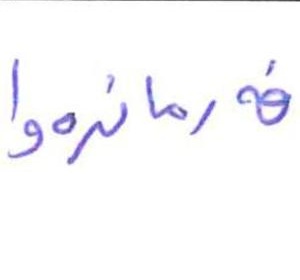 فەرمانرەوا